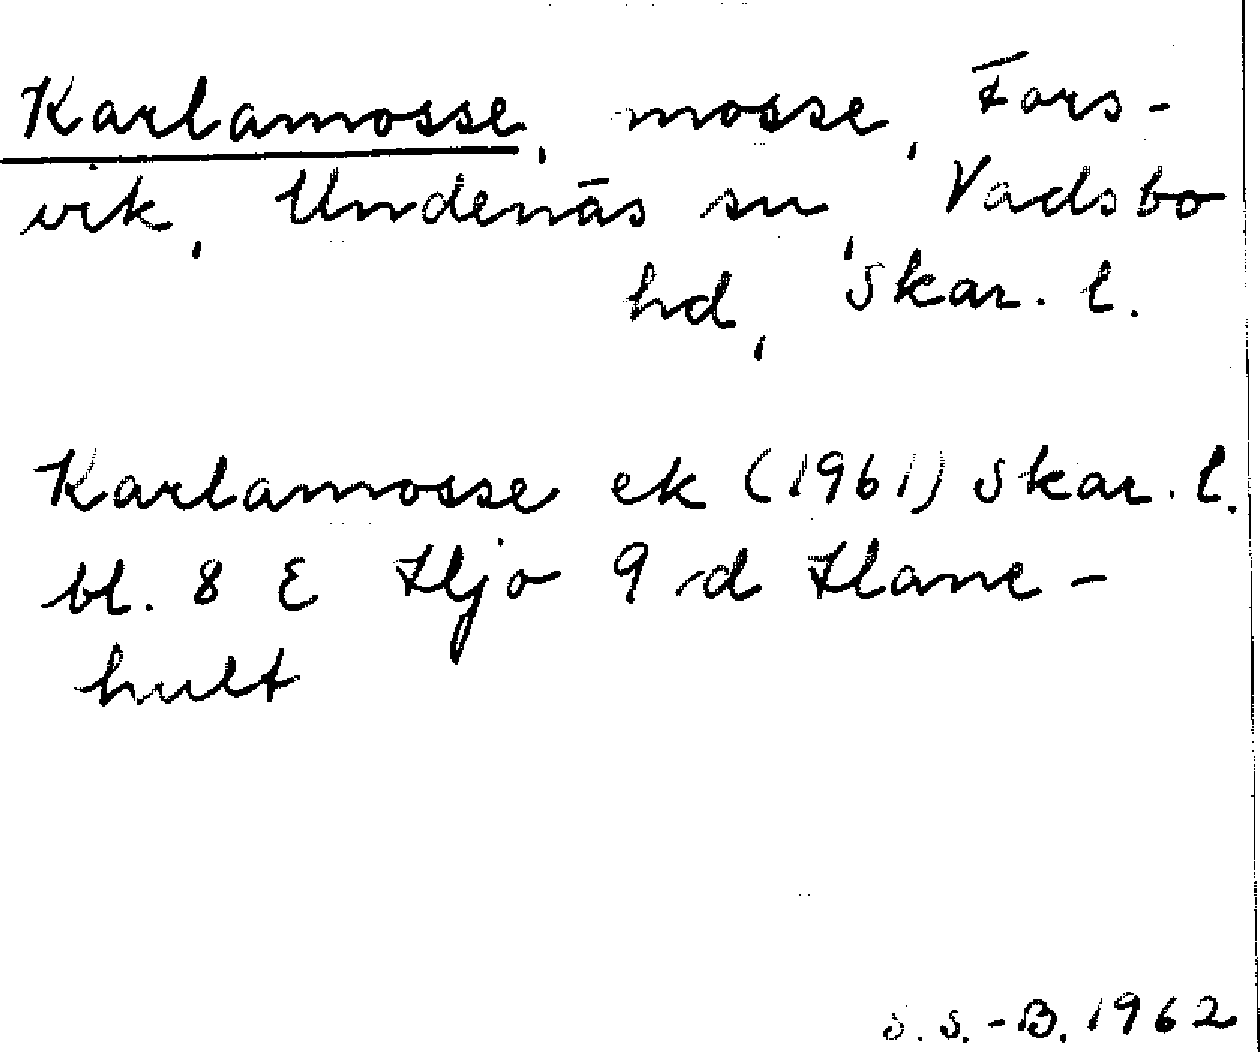 Karlamosse, mosse, Fors-
vik, Undenäs sn, Vadsbo
hd, Skar. l.
Karlamosse ek (1961) Skar. l.
bl. 8 E Hjo 9 d Hane-
hult
S. S.-B. 1962